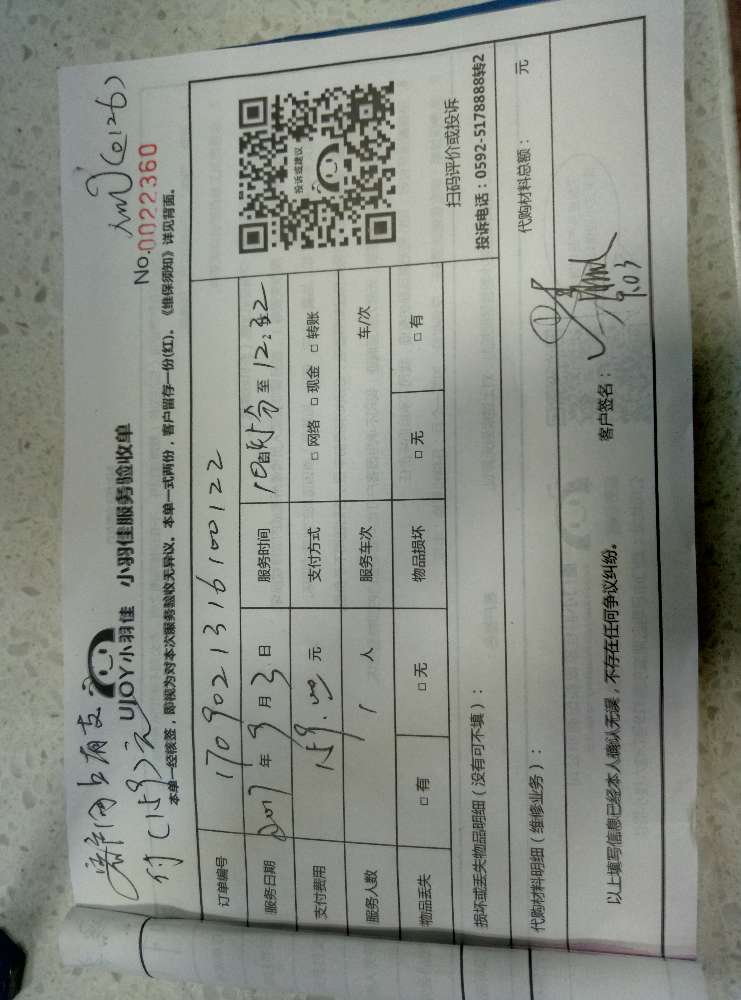 网上有支
付(159)元
(0126)
No.0022360
UJOY小羽佳 小羽佳服务验收单
本单一经核签,即视为对本次服务验收无异议。本单一式两份,客户留存一份(红)。《维保须知》详见背面。
订单编号 1709021316100122
服务日期 2017 年 9 月 3 日 服务时间 至 12:32
支付费用 159.00 元 支付方式 □ 网络 □ 现金 □ 转账
服务人数 1 人 服务车次 车/次
物品丢失 □ 有 □ 无 物品损坏 □ 无 □ 有
投诉或建议
扫码评价或投诉
投诉电话:0592-5178888转2
损坏或丢失物品明细(没有可不填):
代购材料明细(维修业务): 代购材料总额: 元
以上填写信息已经本人确认无误,不存在任何争议纠纷。 客户签名:
9.03